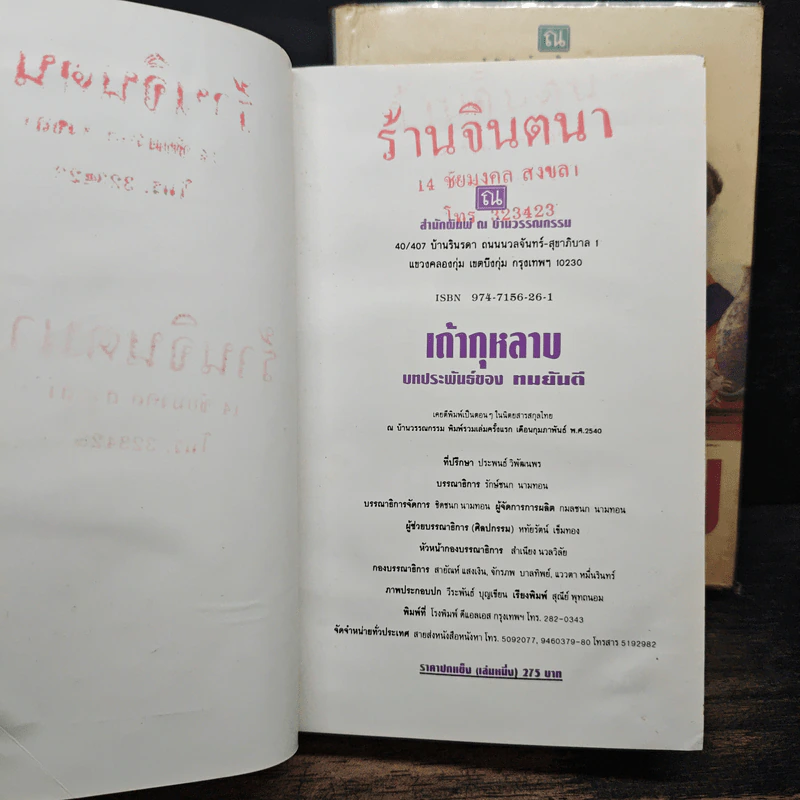 ณ
ร้านจินตนา
14 ชัยมงคล สงขลา
ณ
โทร. 323423
สำนักพิมพ์ ณ บ้านวรรณกรรม
40/407 บ้านรินรดา ถนนนวลจันทร์-สุขาภิบาล 1
แขวงคลองกุ่ม เขตบึงกุ่ม กรุงเทพฯ 10230
ISBN 974-7156-26-1
เถ้ากุหลาบ
บทประพันธ์ของ ทมยันตี
เคยตีพิมพ์เป็นตอนๆ ในนิตยสารสกุลไทย
ณ บ้านวรรณกรรม พิมพ์รวมเล่มครั้งแรก เดือนกุมภาพันธ์ พ.ศ.2540
ที่ปรึกษา ประพนธ์ วิพัฒนพร
บรรณาธิการ รักษ์ชนก นามทอน
บรรณาธิการจัดการ ชิดชนก นามทอน ผู้จัดการการผลิต กมลชนก นามทอน
ผู้ช่วยบรรณาธิการ (ศิลปกรรม) หทัยรัตน์ เข็มทอง
หัวหน้ากองบรรณาธิการ สำเนียง นวลวิลัย
กองบรรณาธิการ สายัณห์ แสงเงิน, จักรภพ บาลทิพย์, แววตา หมื่นรินทร์
ภาพประกอบปก วีระพันธ์ บุญเขียน เรียงพิมพ์ สุณีย์ พุทถนอม
พิมพ์ที่ โรงพิมพ์ ดีแอลเอส กรุงเทพฯ โทร. 282-0343
จัดจำหน่ายทั่วประเทศ สายส่งหนังสือหนังหา โทร. 5092077, 9460379-80 โทรสาร 5192982
ราคาปกแข็ง (เล่มหนึ่ง) 275 บาท